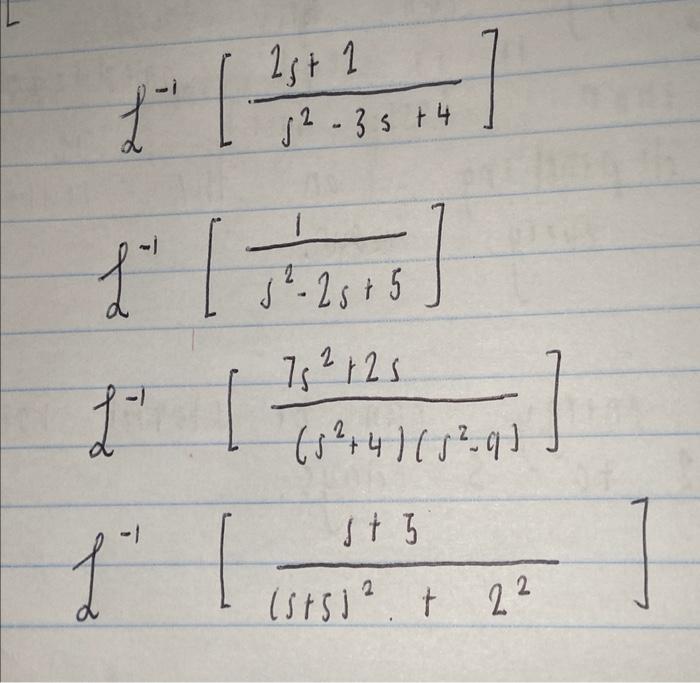 ℒ⁻¹ [ (2s + 2) / (s² - 3s + 4) ]
ℒ⁻¹ [ 1 / (s² - 2s + 5) ]
ℒ⁻¹ [ (7s² + 2s) / ((s² + 4)(s² - 9)) ]
ℒ⁻¹ [ (s + 5) / ((s + 5)² + 2²) ]